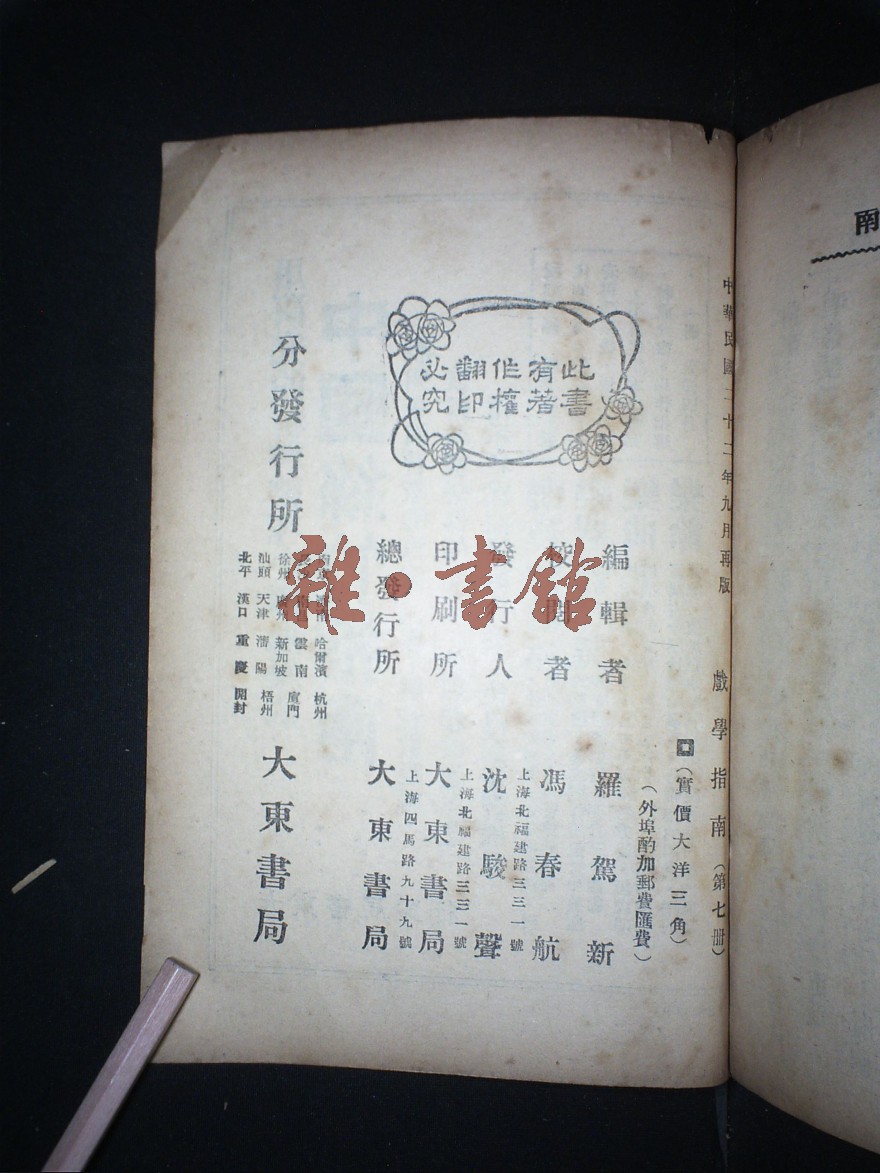 中華民國二十二年九月再版
戲學指南(第七冊)
(實價大洋三角)
(外埠酌加郵費匯費)
此書
有著
作權
翻印
必究
編輯者 羅駕新
校閱者 馮春航
上海北福建路三三一號
發行人 沈駿聲
上海北福建路三三一號
印刷所 大東書局
上海四馬路九十九號
總發行所 大東書局
分發行所
哈爾濱 杭州
雲南 廈門
徐州 廣州 新加坡
汕頭 天津 瀋陽 梧州
北平 漢口 重慶 開封
大東書局
雜·書館
南